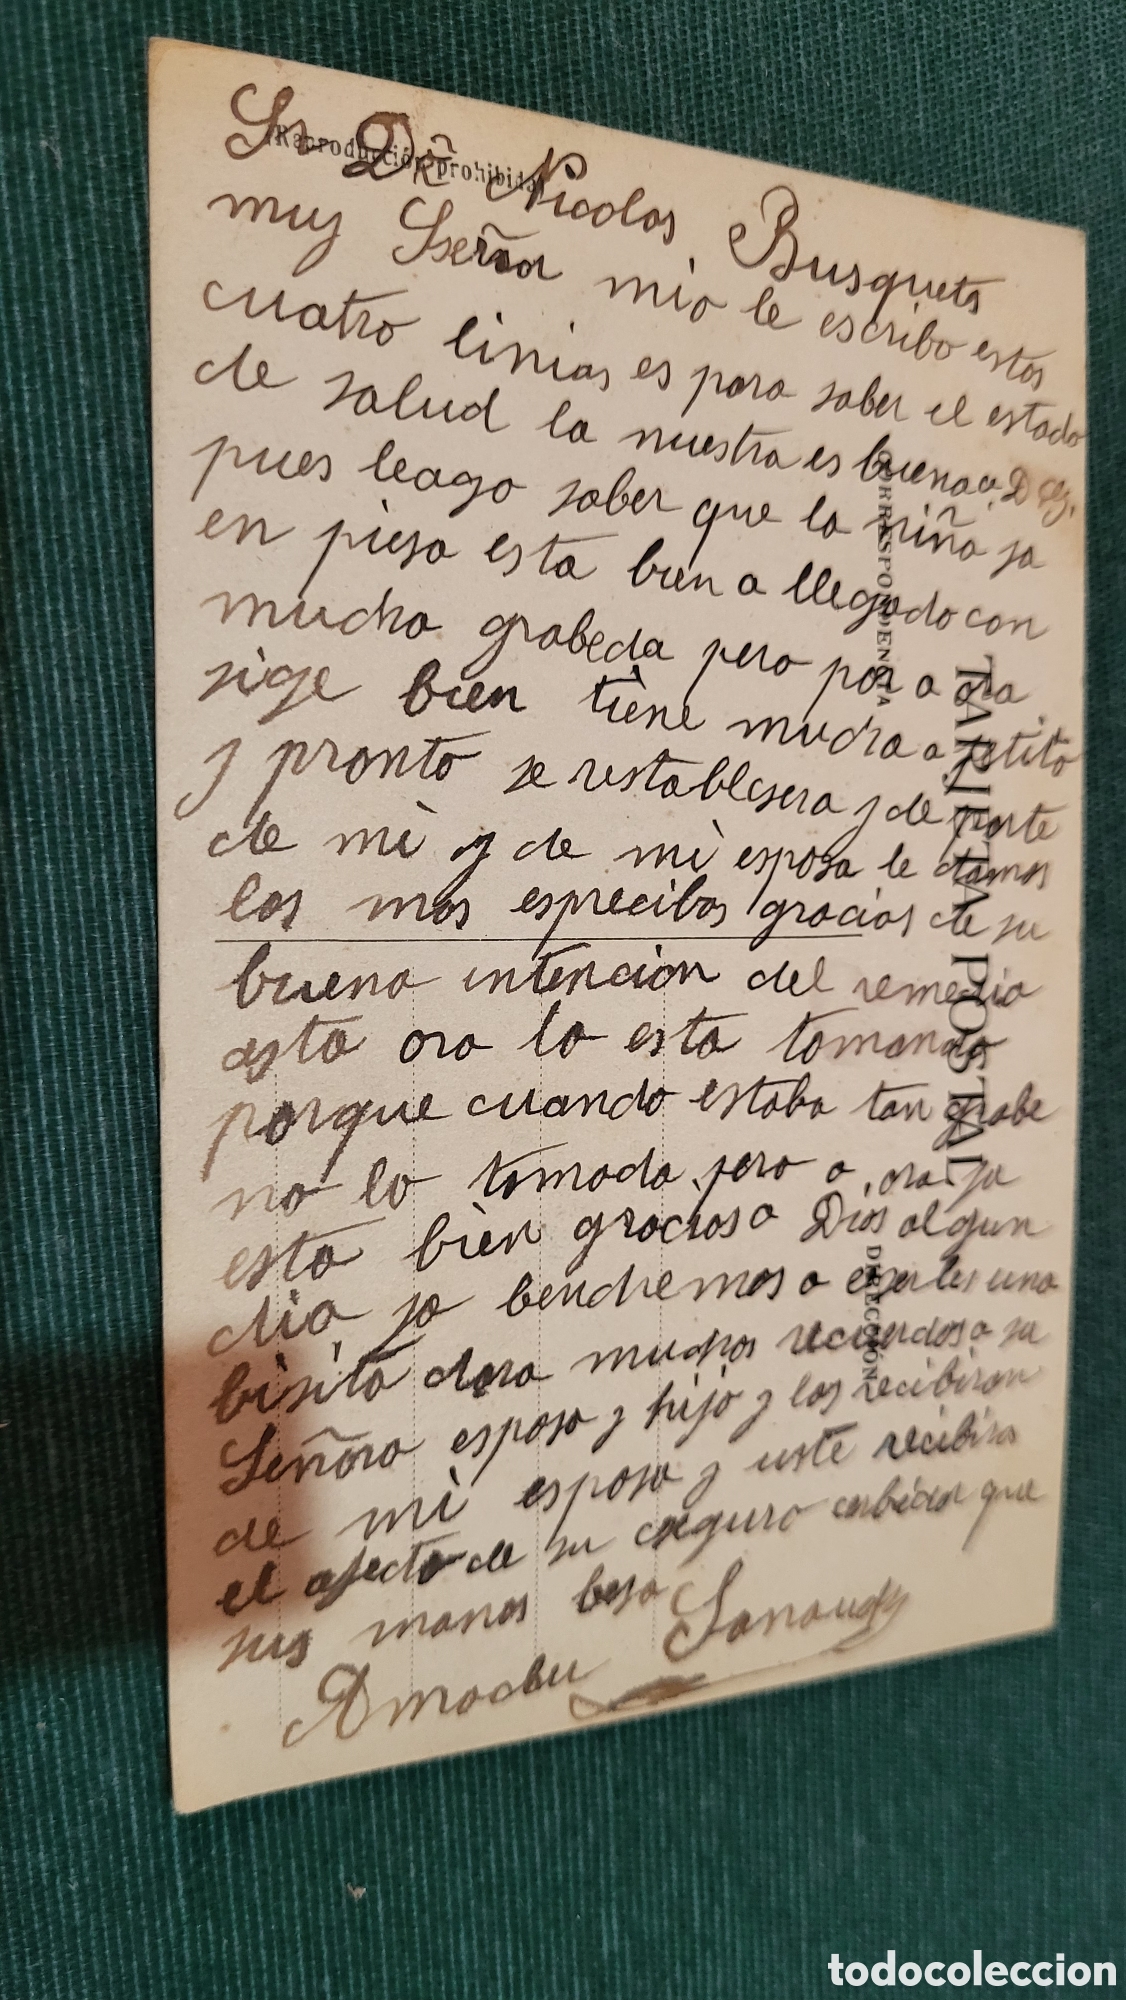 Sr Dñ Nicolas Busquets
muy Sseñor mio le escribo estas
cuatro linias es para saber el estado
de salud la nuestra es buena a D G.
pues leago saber que la niña ya
en piesa esta bien a llegado con
mucha grabeda pero por a ora
sige bien tiene mucha a petito
y pronto se restablesera y de parte
de mi y de mi esposa le damos
las mas esprecibas gracias de su
buena intencion del remedio
asta ora lo esta tomando
porque cuando estaba tan grabe
no lo tomada pero a ora ya
esta bien gracias a Dios algun
dia ya bendremos a eserles una
bisita dara muchos recuerdos a su
Señora esposa y hijo y las recibiran
de mi esposa y uste recibira
el afecto de su seguro que
sus manos besa
Amadeu
(Reproducción prohibida)
CORRESPONDENCIA
TARJETA POSTAL
DIRECCIÓN
todocoleccion